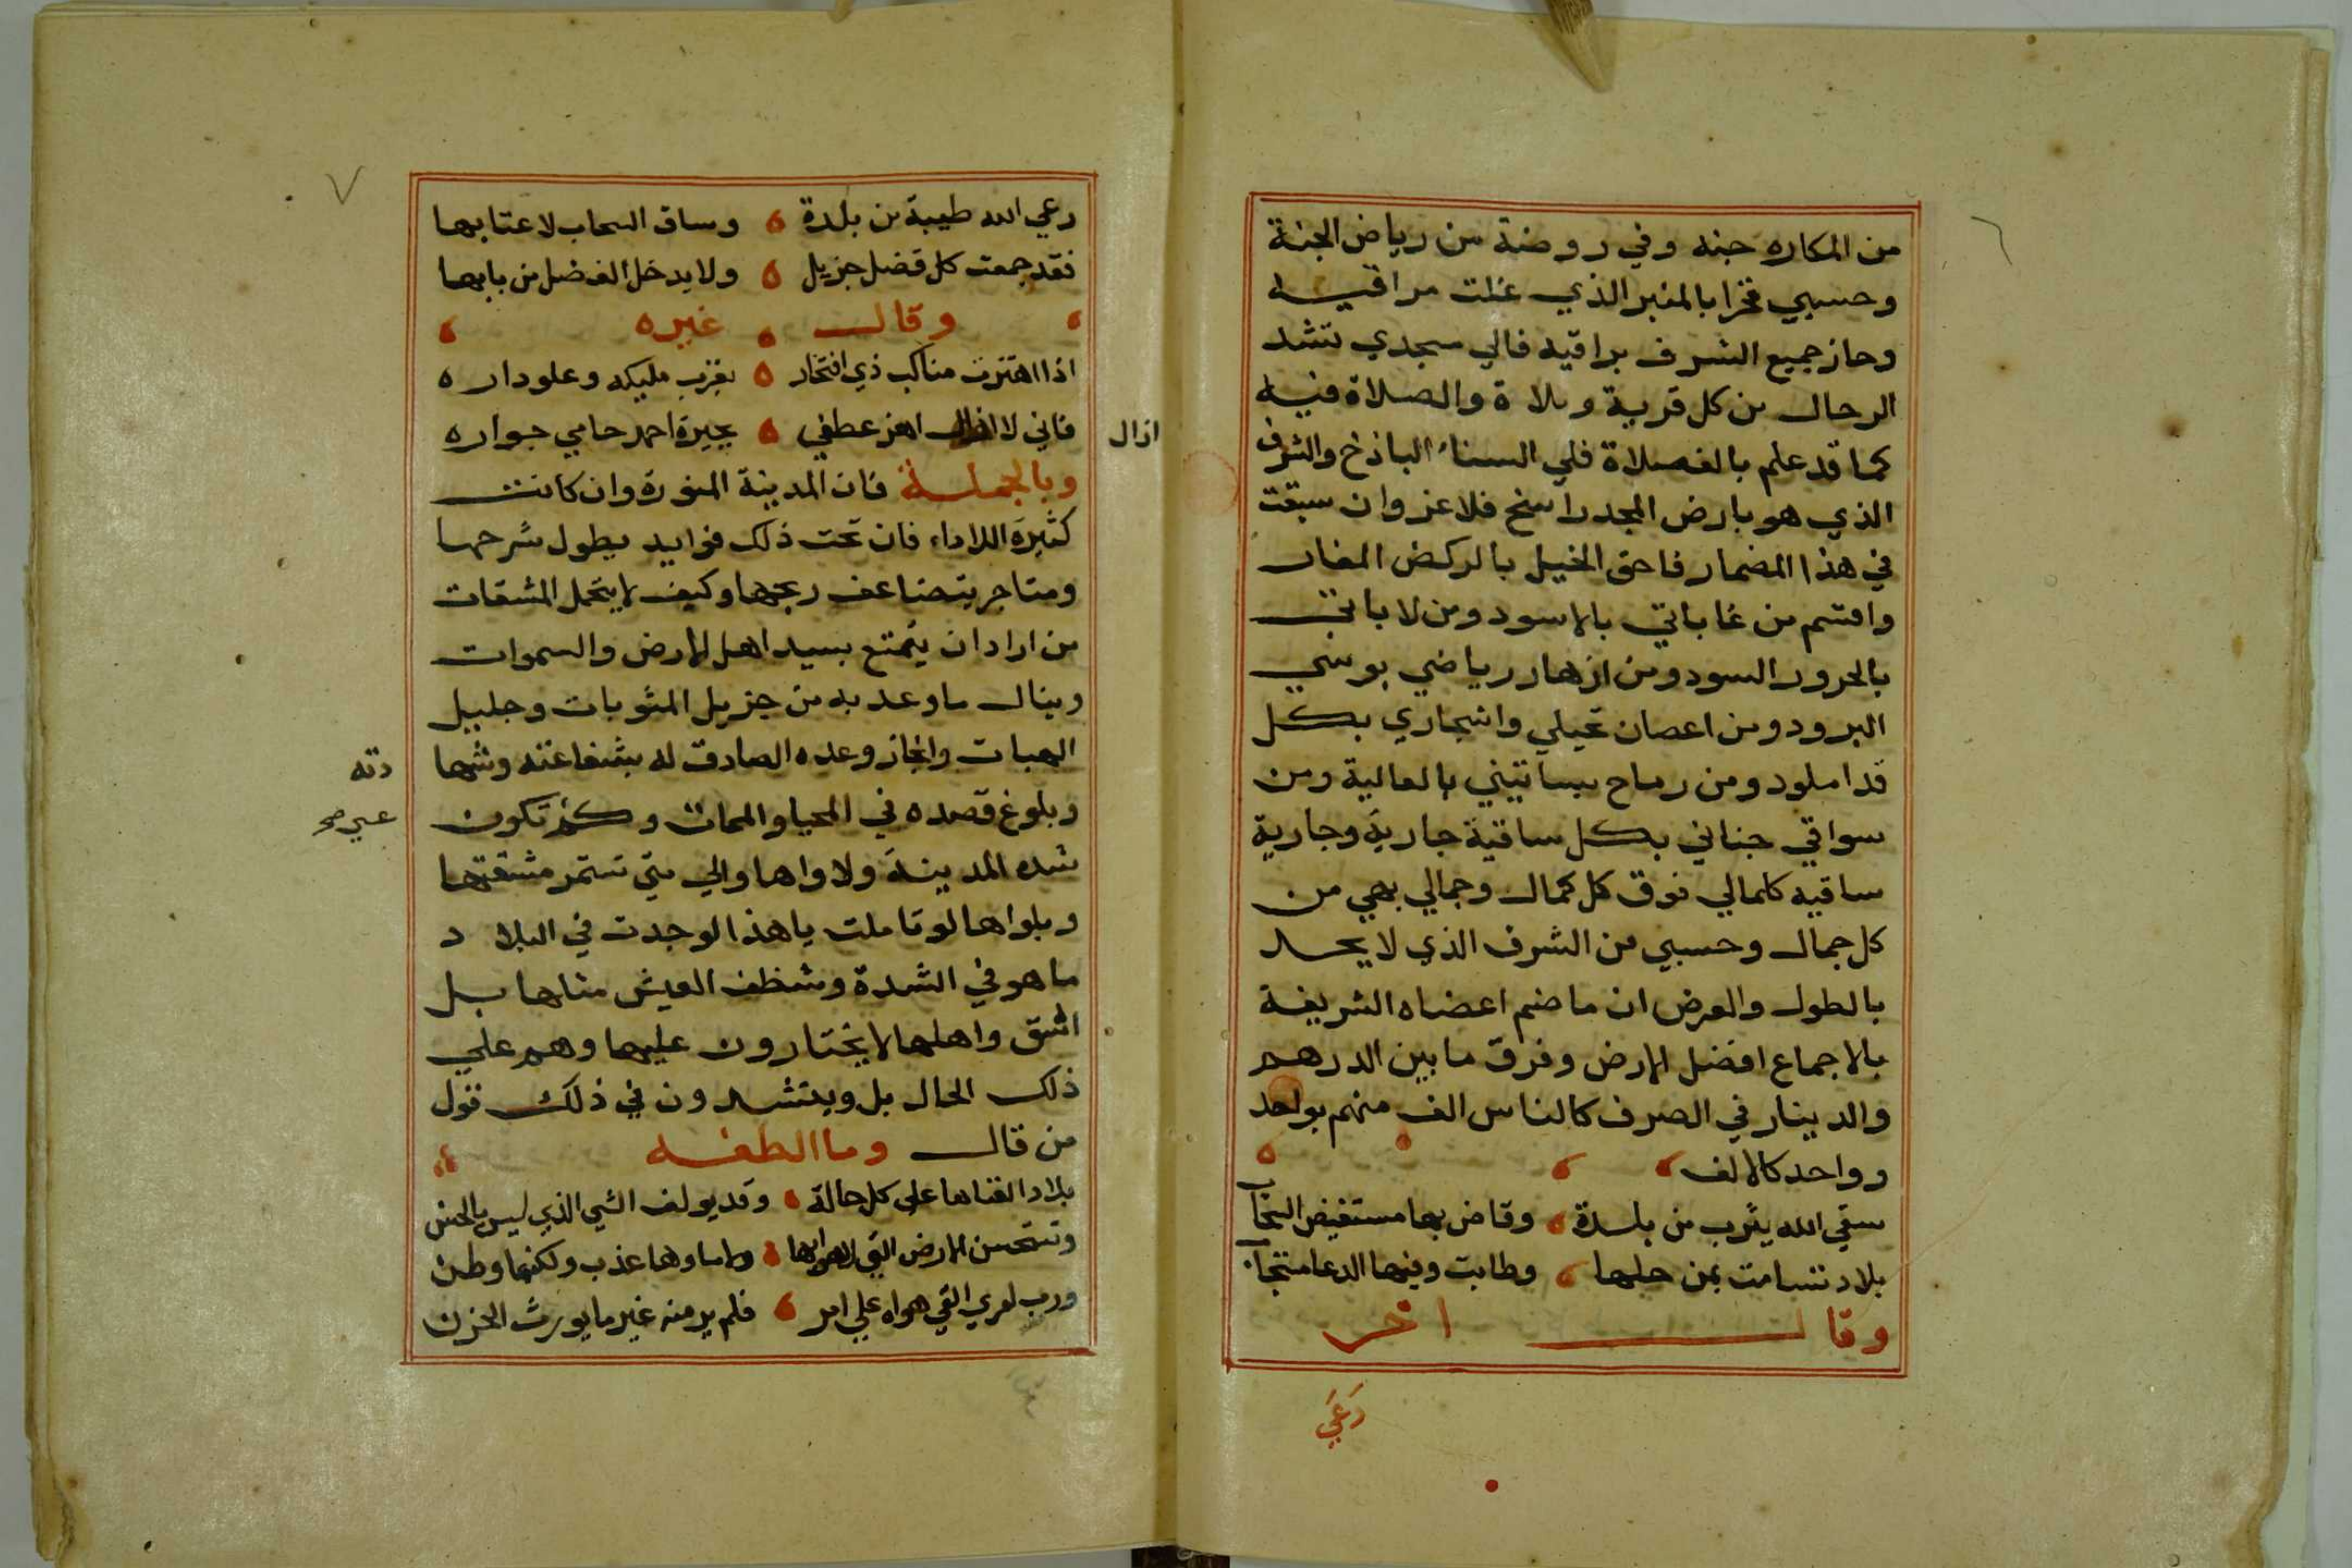 ٦
من المكاره جنه وفي روضة من رياض الجنة
وحسبي فخرا بالمنبر الذي علت مراقيه
وحاز جميع الشرف براقيه فالي مسجدي تشد
الرحال من كل قرية وبلاة والصلاة فيه
كما قد علم بالف صلاة فلي السناء الباذخ والشرف
الذي هو بارض المجد راسخ فلا غر وان سبقت
في هذا المضمار فاحق الخيل بالركض المغار
واقسم من غاباتي بالاسود ومن لاباتي
بالحرور السود ومن ازهار رياضي بوشي
البرود ومن اعصان نخيلي واشجاري بكل
قد املود ومن رماح بساتيني بالعالية ومن
سواقي جناني بكل ساقية جارية وجارية
ساقيه كلمالي فوق كل كمال وجمالي بهي من
كل جمال وحسبي من الشرف الذي لا يحد
بالطول والعرض ان ما ضم اعضاه الشريفة
بالاجماع افضل الارض وفرق ما بين الدرهم
والدينار في الصرف كالناس الف منهم بواحد
وواحد كالالف
سقي الله يثرب من بلدة وفاض بها مستفيض النجا
بلاد تسامت بمن حلها وطابت وفيها الدعا مستجاب
وقال اخر
رعي
٧
رعي الله طيبة من بلدة وساق السحاب لاعتابها
فقد جمعت كل فضل جزيل ولا يدخل الفضل من بابها
وقال غيره
اذا اهتزت مناكب ذي افتخار بقرب مليكه وعلو داره
فاني لا ازال اهز عطفي بجيرة احمد حامي جواره
ازال
وبالجملة فان المدينة المنورة وان كانت
كثيرة اللاواء فان تحت ذلك فوايد يطول شرحها
ومتاجر يتضاعف ربحها وكيف لا يتحمل المشقات
من اراد ان يتمتع بسيد اهل الارض والسموات
وينال ما وعد به من جزيل المثوبات وجليل
الهبات وانجاز وعده الصادق له بشفاعته وشها
دته
وبلوغ قصده في المحيا والممات وكم تكون
شده المدينة ولاواها والي متي تستمر مشقتها
وبلواها لو تاملت يا هذا لوجدت في البلاد
ما هو في الشدة وشظف العيش مثلها بل
اشق واهلها لا يختارون عليها وهم علي
ذلك الحال بل وينشدون في ذلك قول
من قال وما الطفه
بلاد الفناها على كل حالة وقد يولف الشي الذي ليس بالحسن
وتستحسن الارض التي لا هوا بها ولا ماوها عذب ولكنها وطن
ورب امري القي هواه علي امر فلم ير منه غير ما يورث الحزن